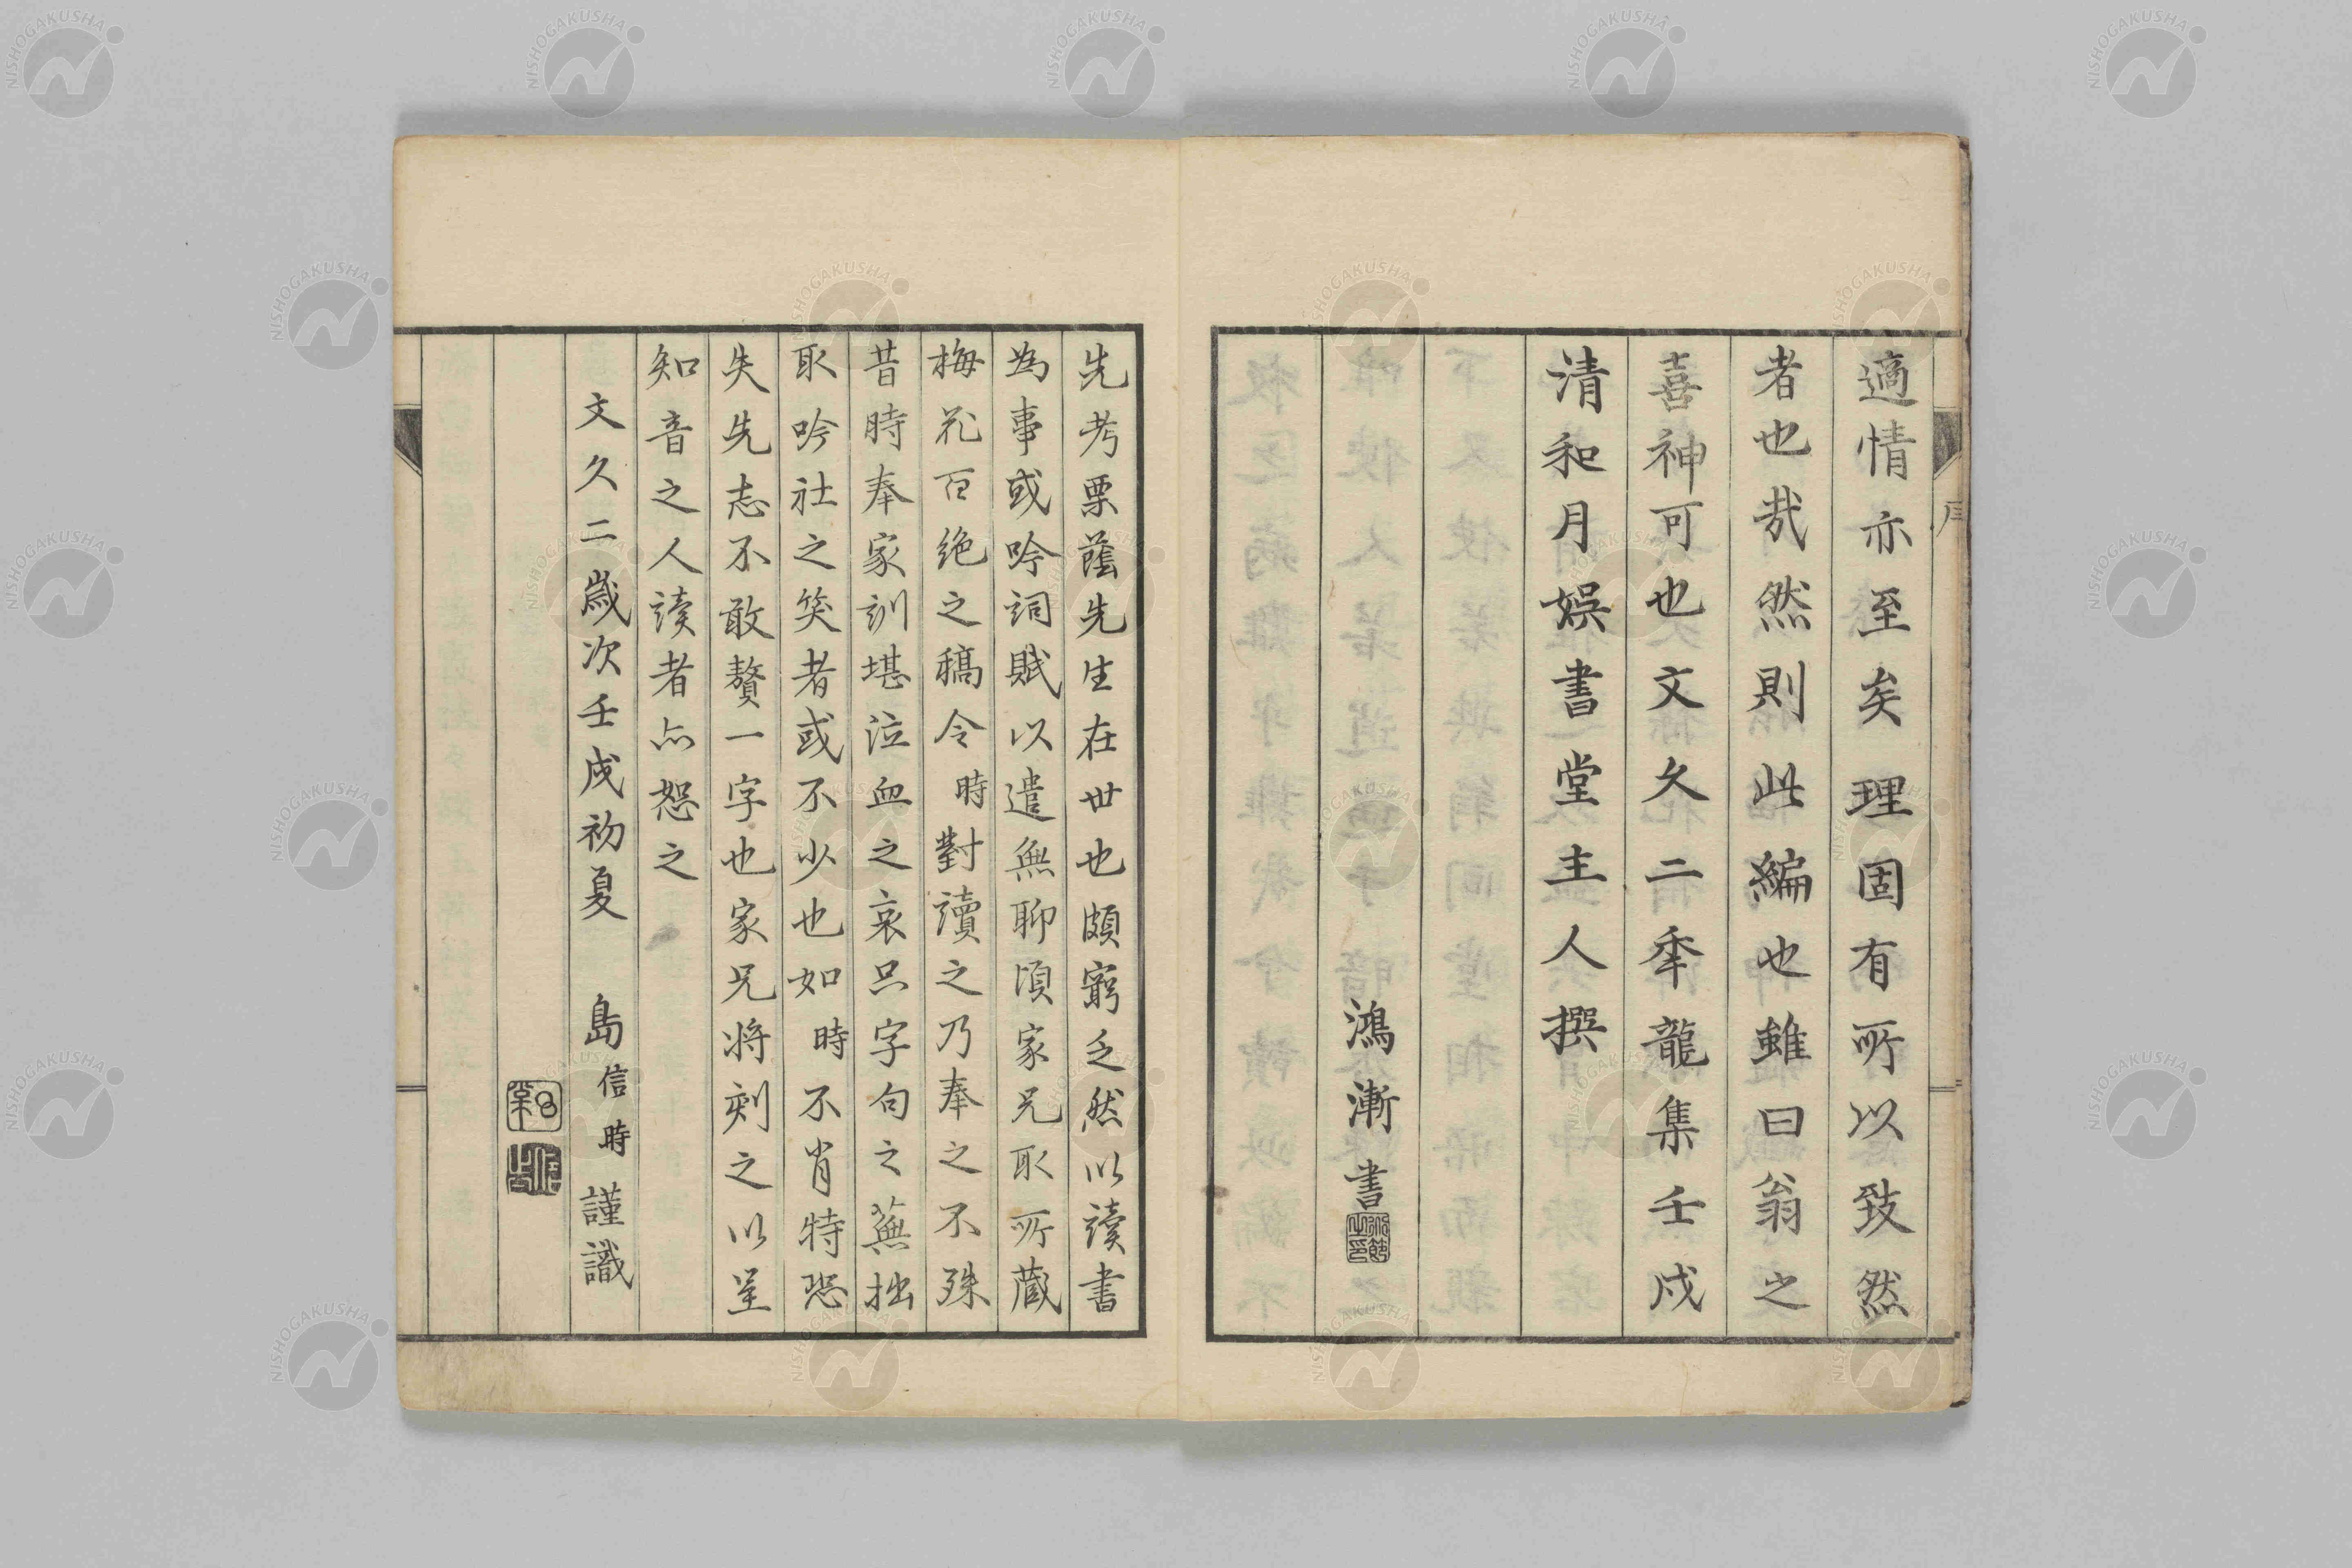 適情亦至矣理固有所以致然
者也哉然則此編也雖曰翁之
喜神可也文久二年龍集壬戌
清和月娯書堂主人撰
鴻漸書
先考栗蔭先生在世也頗窮乏然以讀書
為事或吟詞賦以遣無聊頃家兄取所蔵
梅花百絶之稿令時對讀之乃奉之不殊
昔時奉家訓堪泣血之哀只字句之蕪拙
取吟社之笑者或不少也如時不肖特恐
失先志不敢贅一字也家兄将刻之以呈
知音之人讀者亦恕之
文久二歳次壬戌初夏 島信時謹識
序
NISHOGAKUSHA